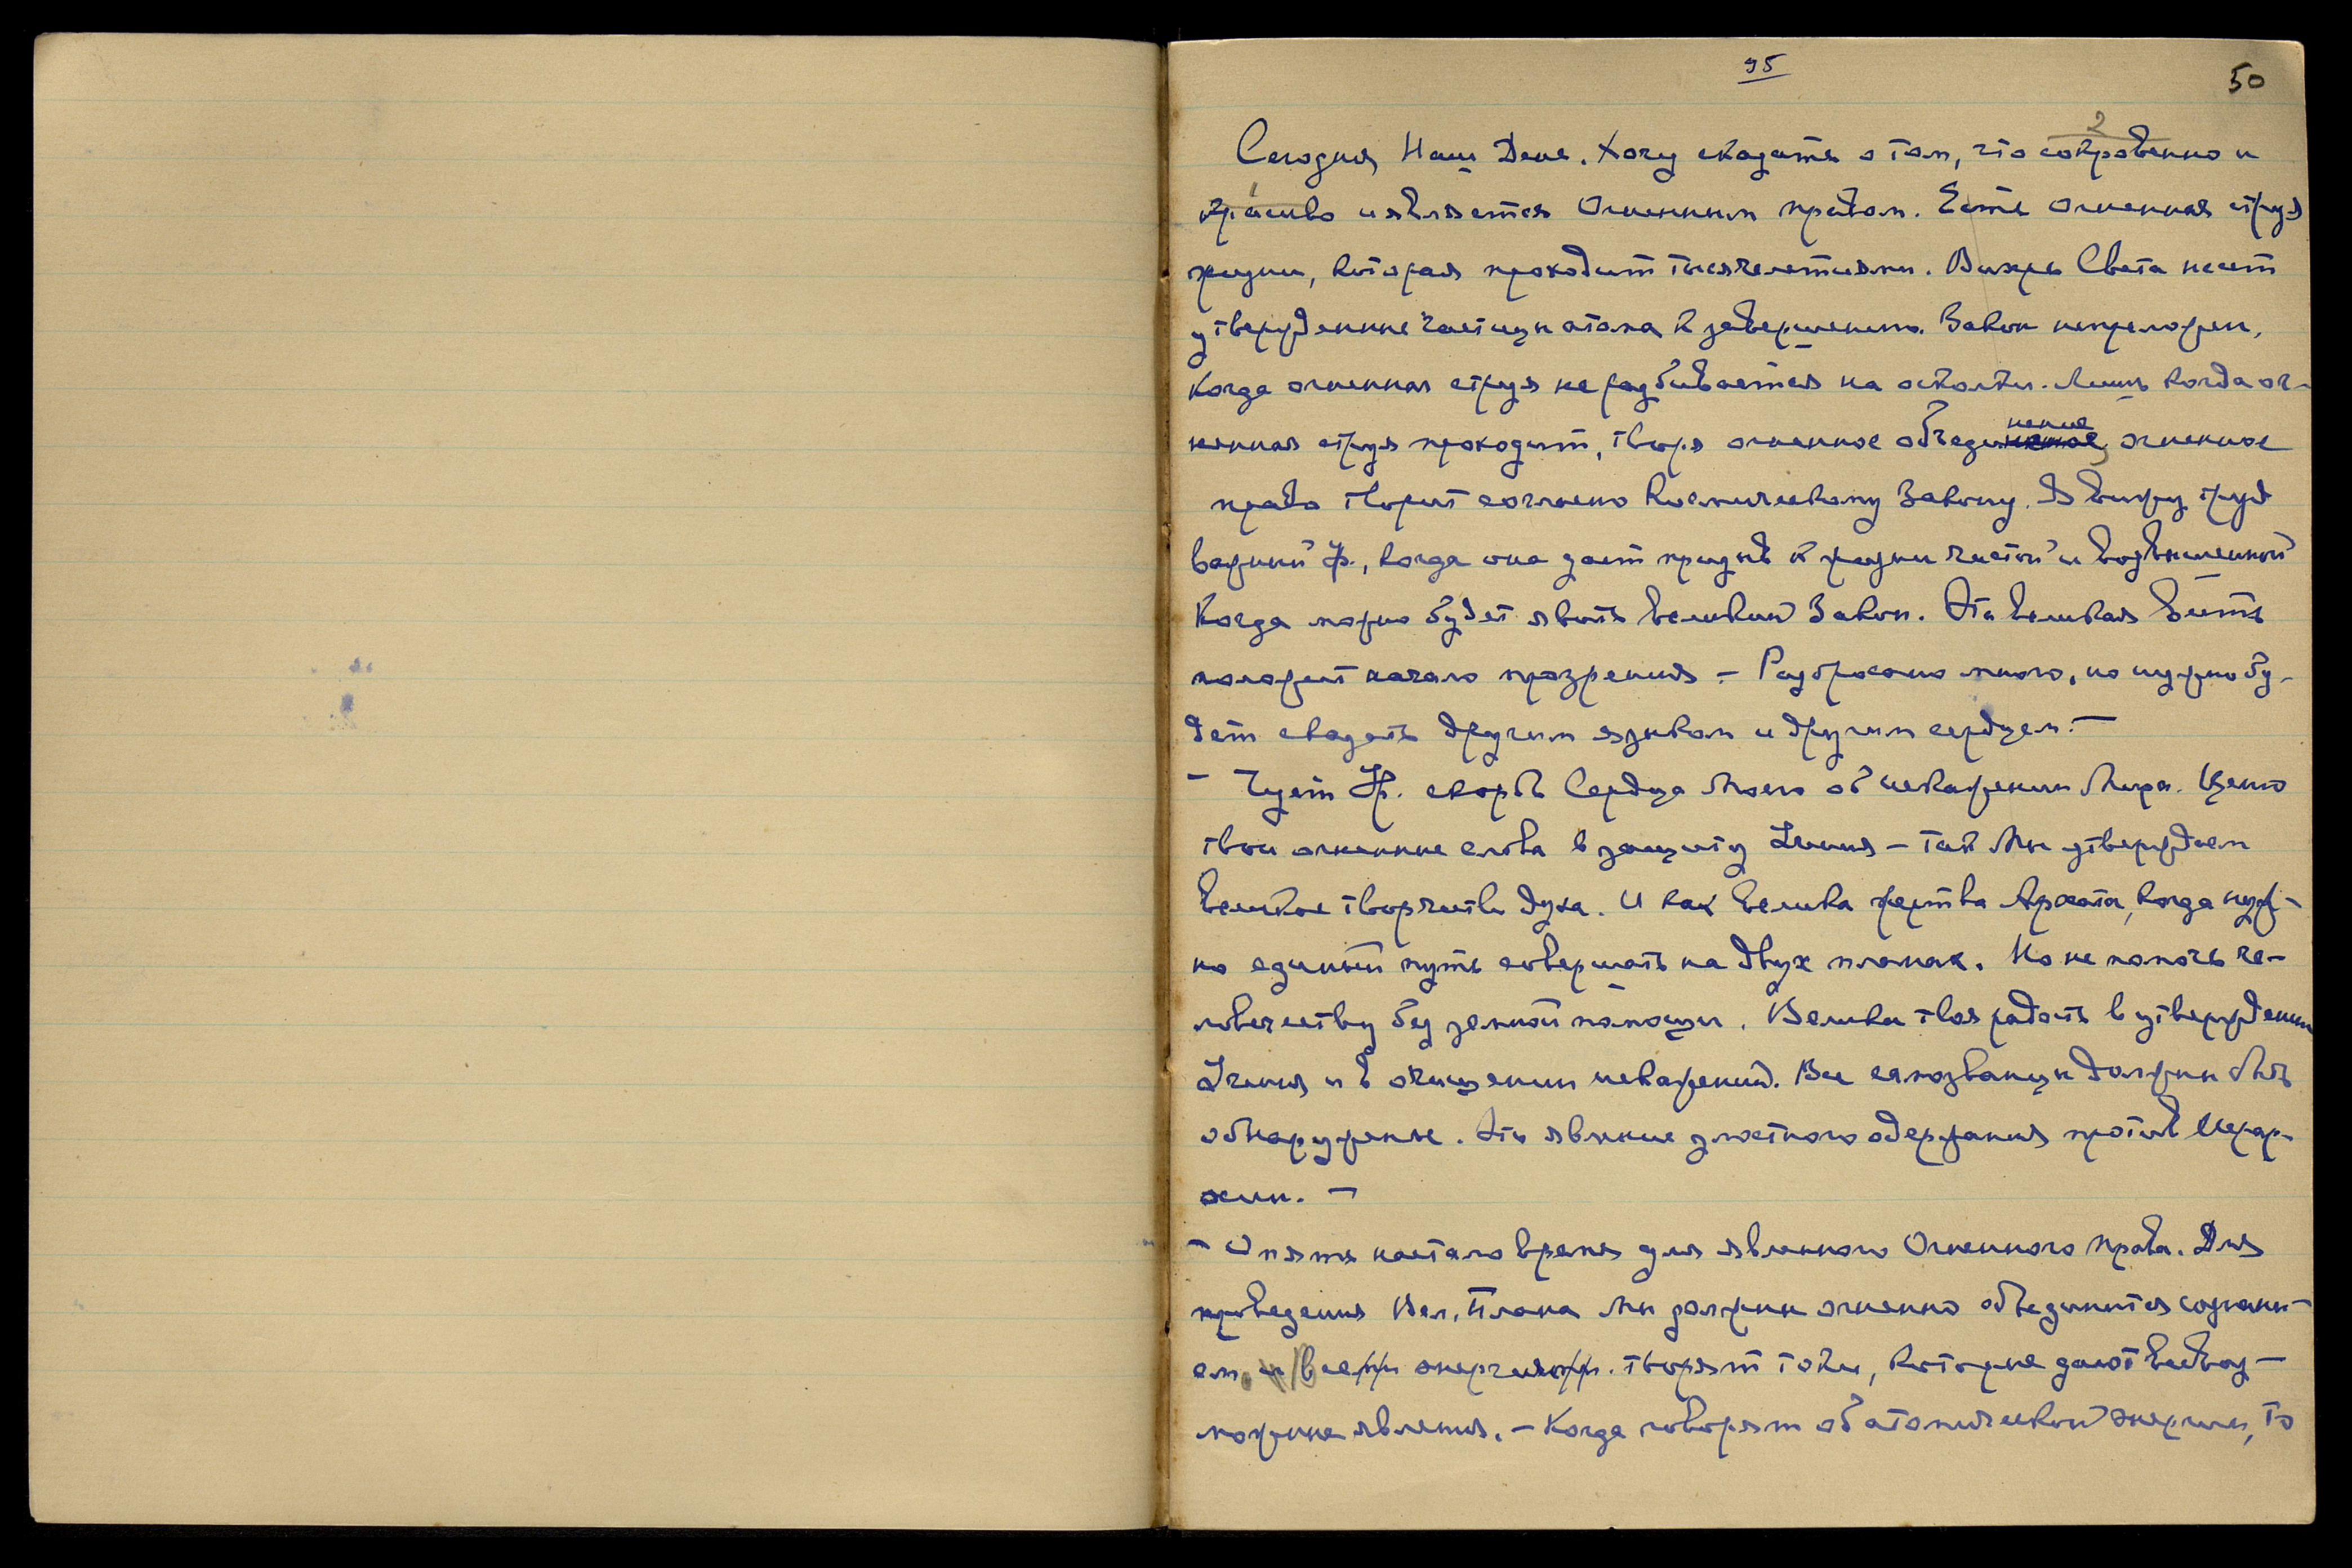 95
50
2
Сегодня Наш День. Хочу сказать о том, что сокровенно и
1
красиво и является Огненным правом. Есть огненная струя
жизни, которая проходит тысячелетиями. Вихрь Света несет
утвержденные частицы атома к завершению. Закон непреложен,
когда огненная струя не разбивается на осколки. Лишь когда ог-
ненная струя проходит, творя огненное объединение, огненное
право творит согласно Космическому Закону. Я вижу труд
важный Ур., когда она дает призыв к жизни чистой и возвышенной
Когда можно будет явить великий Закон. Эта великая весть
положит начало прозрения — Разбросано много, но нужно бу-
дет сказать другим языком и другим сердцем. —
— Чует Ур. скорбь Сердца Моего об искажении Мира. Ценю
твои огненные слова в защиту Учения — так Мы утверждаем
великое творчество духа. И как велика жертва Архата, когда нуж-
но единый путь совершать на двух планах. Но не помочь че-
ловечеству без земной помощи. Велика твоя радость в утверждении
Учения и в очищении искажений. Все самозванцы должны быть
обнаружены. Это явление злостного одержания против Иерар-
хии. —
— Опять настало время для явленного Огненного права. Для
проведения Вел. Плана Мы должны огненно объединиться сознани-
ем. и все энергия творят токи, которые дают всевоз-
можные явления. — Когда говорят об атомической энергии, то